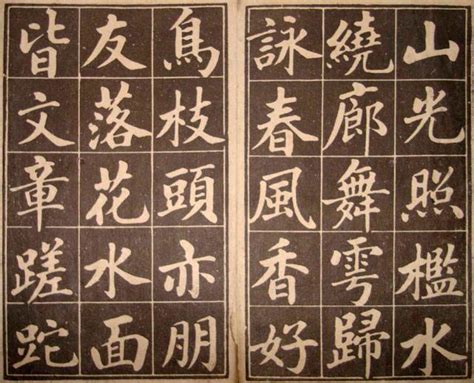 山光照檻水
繞廊舞雩歸
詠春風香好
鳥枝頭亦朋
友落花水面
皆文章蹉跎